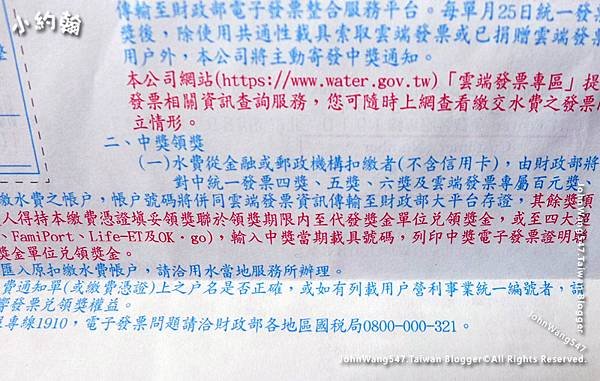 小約翰
傳輸至財政部電子發票整合服務平台。每單月25日統一發票
獎後，除使用共通性載具索取雲端發票或已捐贈雲端發票
用戶外，本公司將主動寄發中獎通知。
本公司網站(https://www.water.gov.tw)「雲端發票專區」提
發票相關資訊查詢服務，您可隨時上網查看繳交水費之發票
立情形。
二、中獎領獎
(一)水費從金融或郵政機構扣繳者(不含信用卡)，由財政部將
對中統一發票四獎、五獎、六獎及雲端發票專屬百元獎、
繳水費之帳戶，帳戶號碼將併同雲端發票資訊傳輸至財政部大平台存證，其餘獎項
人得持本繳費憑證填妥領獎聯於領獎期限內至代發獎金單位兌領獎金，或至四大超
、FamiPort、Life-ET及OK‧go)，輸入中獎當期載具號碼，列印中獎電子發票證明聯
獎金單位兌領獎金。
匯入原扣繳水費帳戶，請洽用水當地服務所辦理。
費通知單(或繳費憑證)上之戶名是否正確，或如有列載用戶營利事業統一編號者，請
響發票兌領獎權益。
專線1910，電子發票問題請洽財政部各地區國稅局0800-000-321。
JohnWang547.Taiwan Blogger
JohnWang547
JohnWang547.Taiwan Blogger©All Rights Reserved.